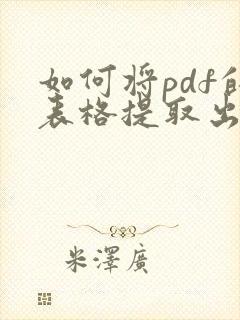 如何将pdf的
表格提取出
米澤廣